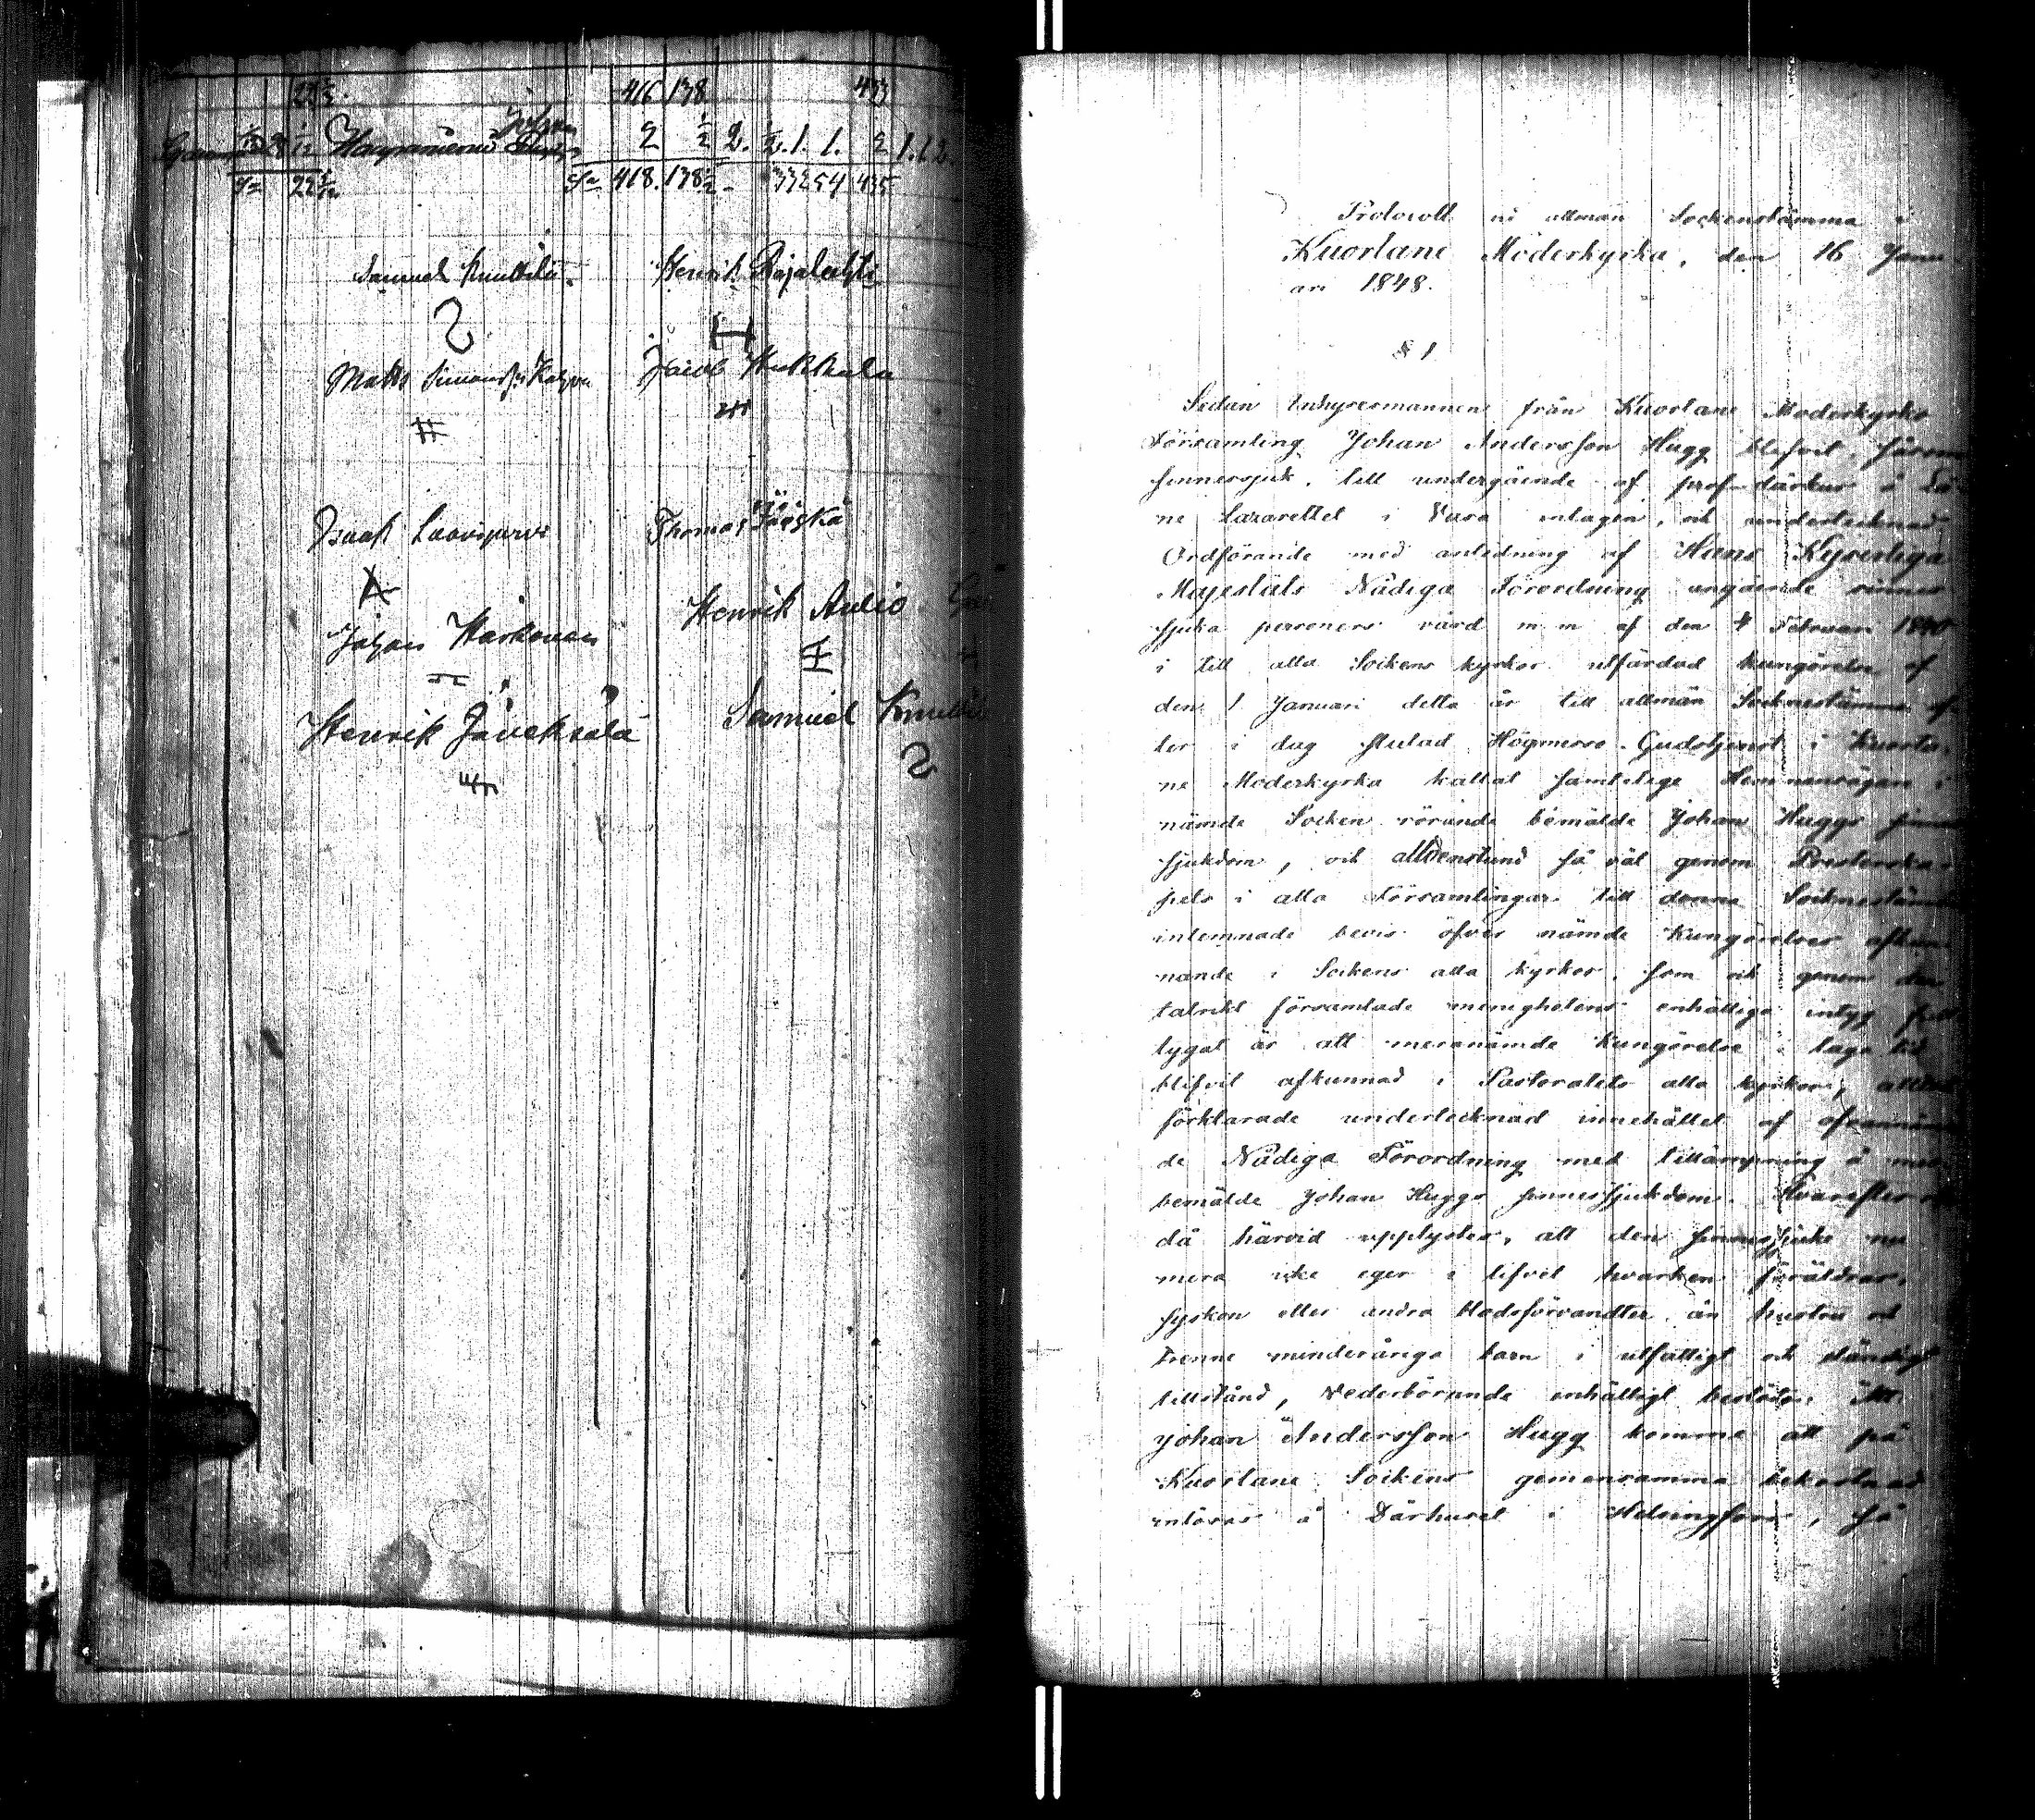 22 ½. 416 138 433
Johan
2 ½ 2. ½. 1. 1. 2 1. 1 2.
S:a 418. 138½ 435
Samuel Knuttila. Henrik Rajalahti
Matts Simonsson Jacob Kukkala
Isaak Thomas Jääskä
Johan Harkonen Henrik Aulio
Henrik Samuel
Protocoll vid allmän Sockenstämma i
Kuortane Moderkyrka, den 16 Janu-
ari 1848.
§ 1
Sedan Inhysesmannen från Kuortane Moderkyrko
Församling Johan Andersson Hugg blifvit, såsom
sinnessjuk, till undergående af prof-dårkur å Lä-
ne Lazarettet i Vasa intagen, och undertecknad
Ordförande med anledning af Hans Kejserliga
Majestäts Nådiga Förordning angående sinnes-
sjuka personers vård m m af den Februari 1840
i till alla Sockens kyrkor utfärdad kungörelse af
den 1 Januari detta år till allmän Sockenstämma ef-
ter i dag slutad Högmesso-Gudstjenst i Kuorta-
ne Moderkyrka kallat samtelige Hemmansägare i
nämde Socken rörande bemälde Johan Huggs sinnes
sjukdom, och alldenstund så väl genom Presterska-
pets i alla Församlingar till denna Sockenstämma
inlemnade bevis öfver nämde Kungörelses afkun-
nande i Sockens alla kyrkor, som och genom den
talrikt församlade menighetens enhälliga intyg full-
tygat är att meranämde Kungörelse i laga tid
blifvit afkunnad i Pastoratets alla kyrkor, alltså
förklarade undertecknad innehållet af ofvannäm-
de Nådiga Förordning med tillämpning å mer-
bemälde Johan Huggs sinnessjukdom. Hvarefter och
då härvid upplystes, att den sinnessjuke nu
mera icke eger i lifvet hvarken föräldrar,
syskon eller andra blodsförvandter än hustru och
trenne minderåriga barn i utfattigt och eländigt
tillstånd, Vederbörande enhälligt beslöto: Att
Johan Andersson Hugg komme att på
Kuortane Sockens gemensamma bekostnad
inlösas å Dårhuset i Helsingfors, så